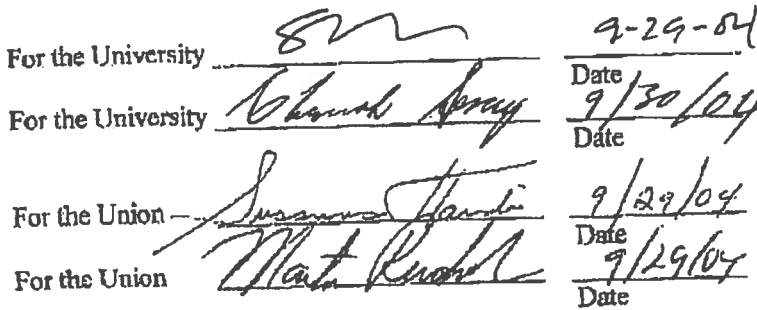 For the University 9-29-04
Date
For the University 9/30/04
Date
For the Union Susanna 9/29/04
Date
For the Union 9/29/04
Date